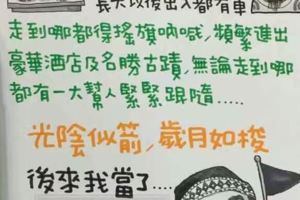 長大以後出入都有車
走到哪都得搖旗吶喊,頻繁進出
豪華酒店及名勝古蹟,無論走到哪
都有一大幫人緊緊跟隨.....
光陰似箭,歲月如梭
後來我當了....